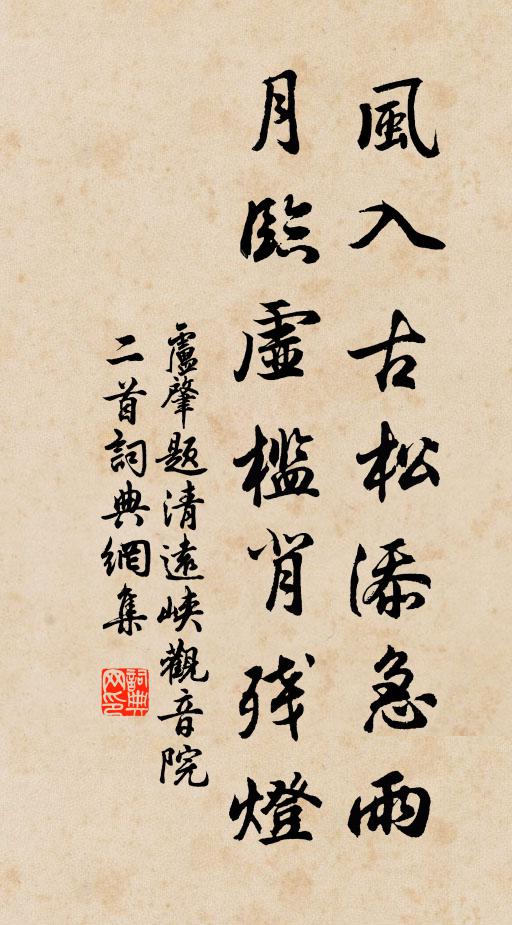 風入古松添急雨
月臨虛檻背残燈
盧肇題清遠峽觀音院
二首詞典網集
詞典
网印